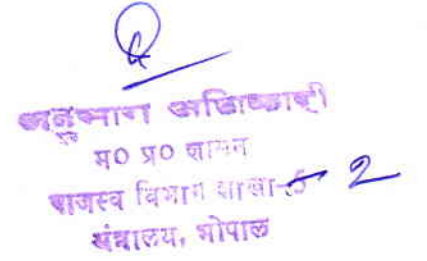 अनुभाग अधिकारी
म0 प्र0 शासन
राजस्व विभाग शाखा-5 2
मंत्रालय, भोपाल